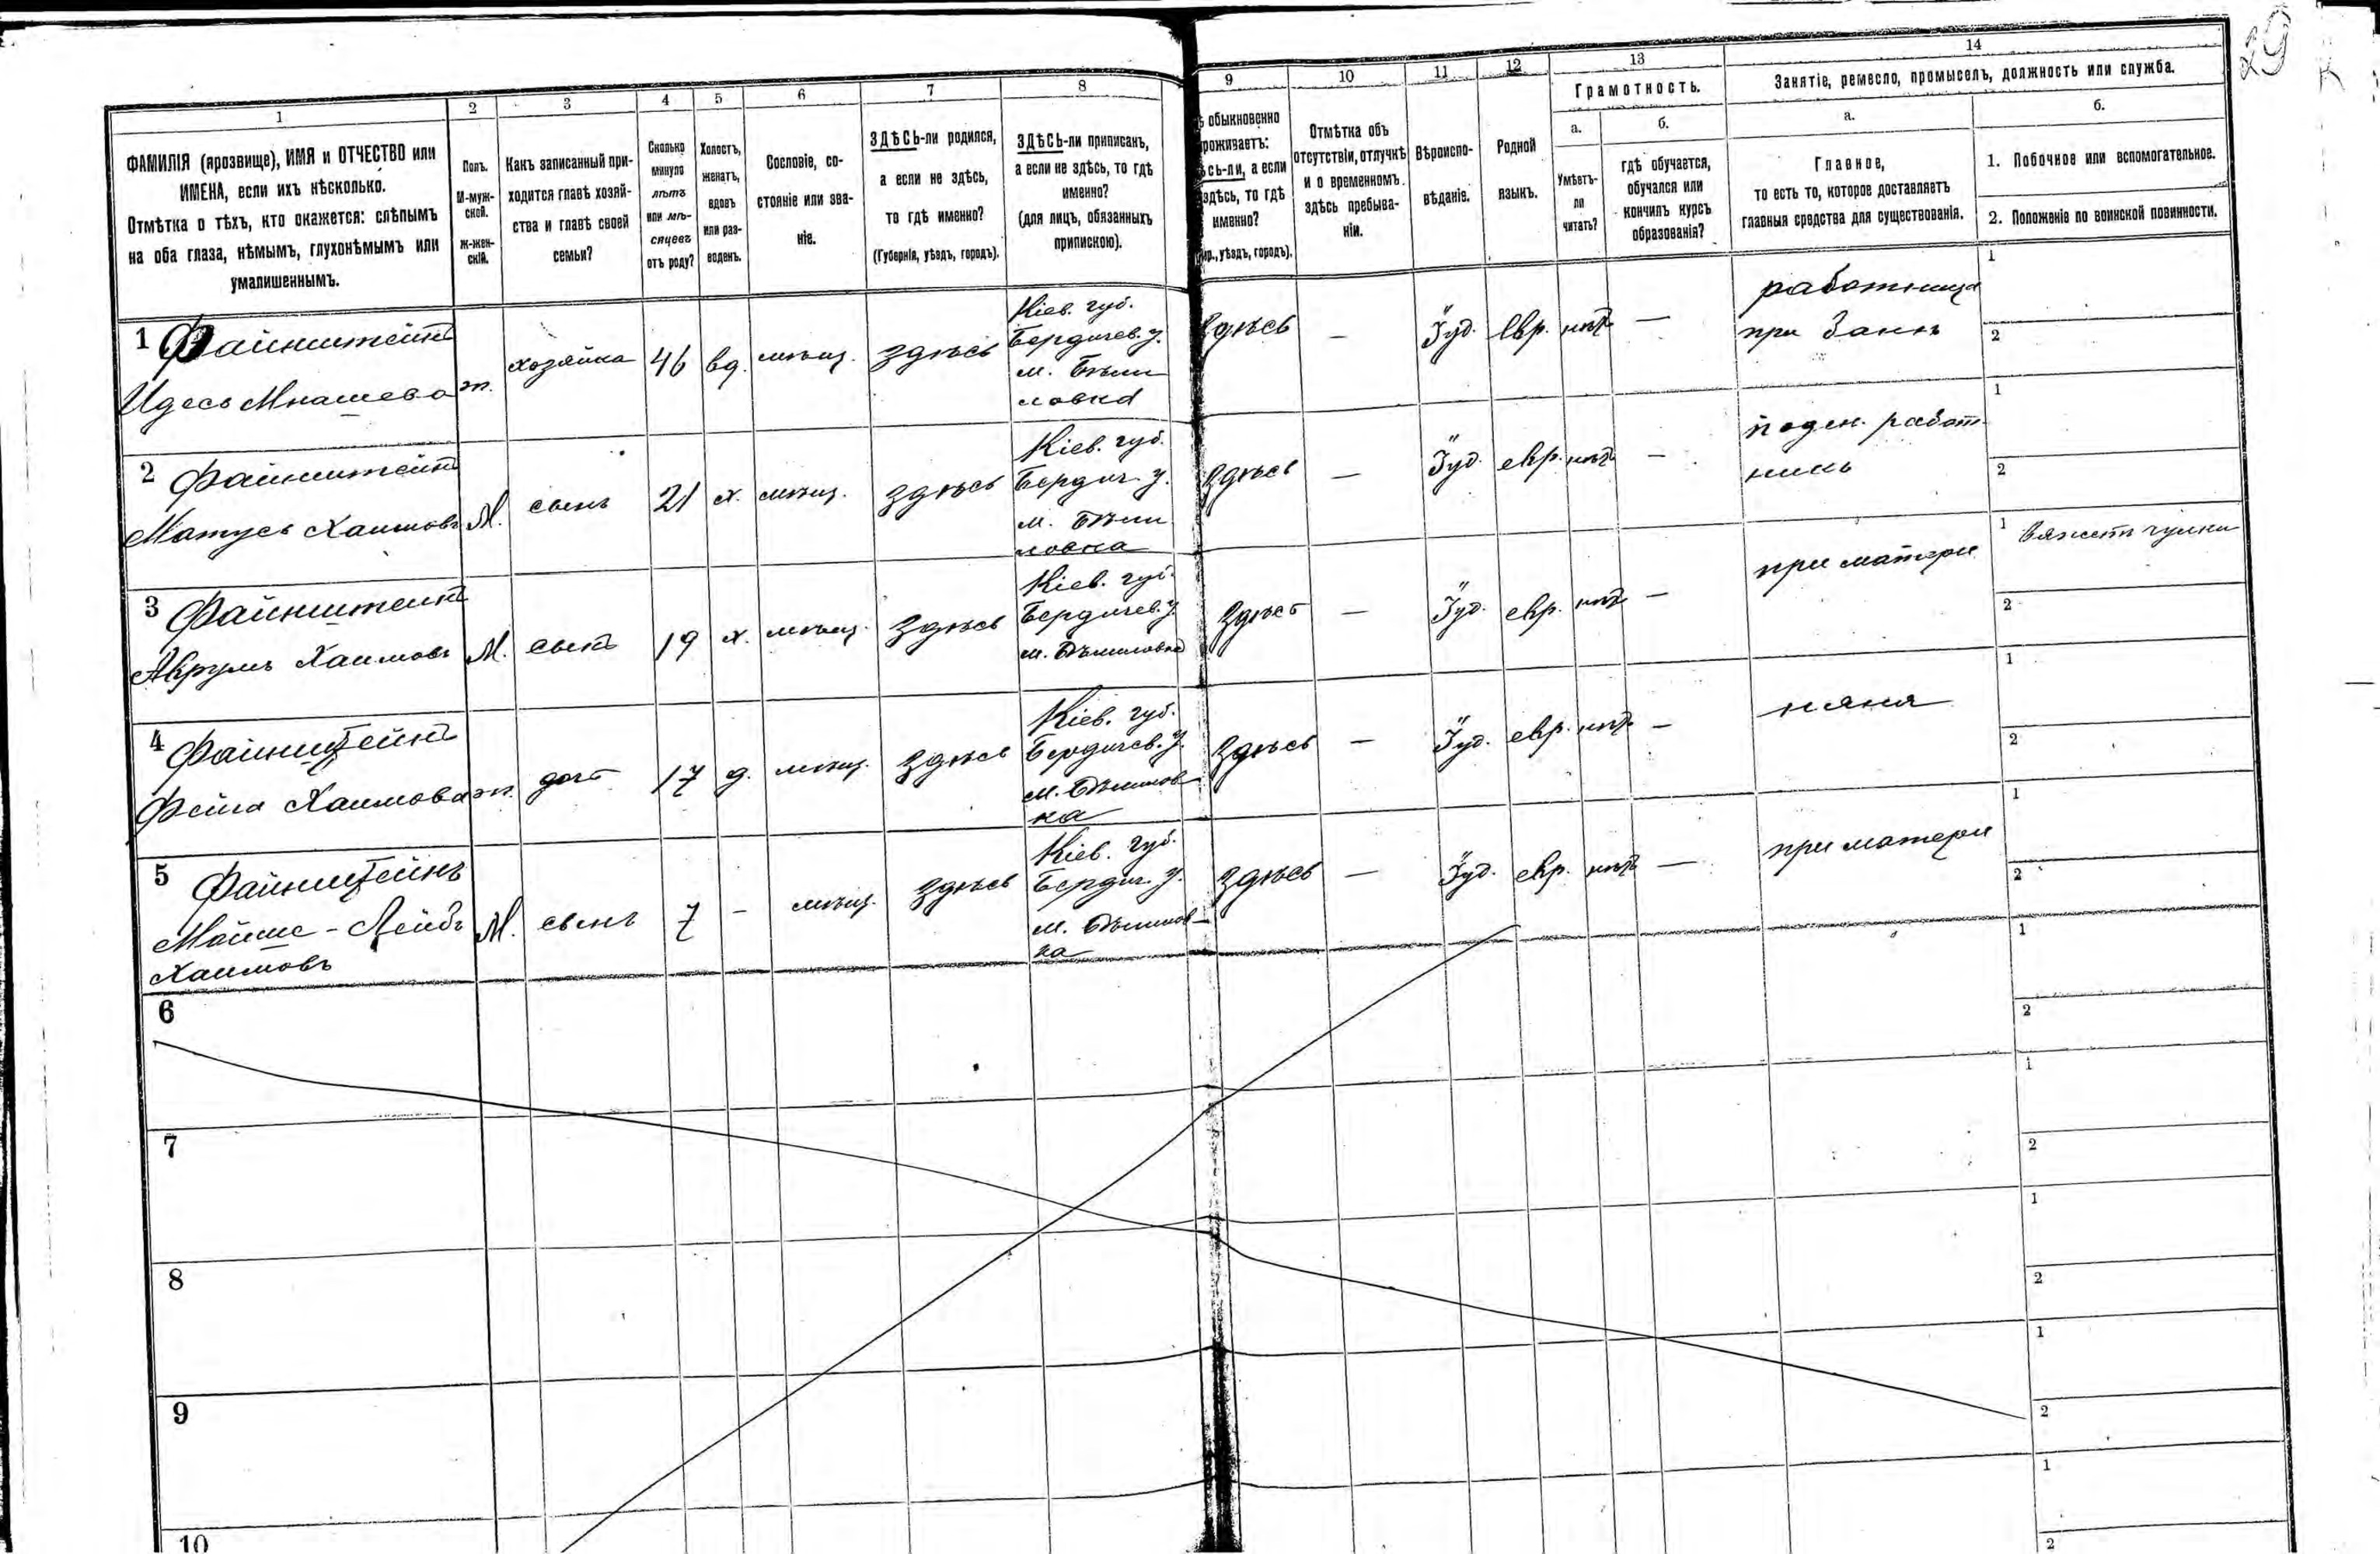 29
1
2
3
4
5
6
7
8
9
10
11
12
13
14
ФАМИЛІЯ (прозвище), ИМЯ и ОТЧЕСТВО или
ИМЕНА, если ихъ нѣсколько.
Отмѣтка о тѣхъ, кто окажется: слѣпымъ
на оба глаза, нѣмымъ, глухонѣмымъ или
умалишеннымъ.
Полъ.
М-муж-
ской.
Ж-жен-
скій.
Какъ записанный при-
ходится главѣ хозяй-
ства и главѣ своей
семьи?
Сколько
минуло
лѣтъ
или мѣ-
сяцевъ
отъ роду?
Холостъ,
женатъ,
вдовъ
или раз-
веденъ.
Сословіе, со-
стояніе или зва-
ніе.
ЗДѢСЬ-ли родился,
а если не здѣсь,
то гдѣ именно?
(Губернія, уѣздъ, городъ).
ЗДѢСЬ-ли приписанъ,
а если не здѣсь, то гдѣ
именно?
(для лицъ, обязанныхъ
припискою).
обыкновенно
роживаетъ:
сь-ли, а если
здѣсь, то гдѣ
именно?
уѣздъ, городъ).
Отмѣтка объ
отсутствіи, отлучкѣ
и о временномъ
здѣсь пребыва-
ніи.
Вѣроиспо-
вѣданіе.
Родной
языкъ.
Грамотность.
а.
Умѣетъ-
ли
читать?
б.
гдѣ обучается,
обучался или
кончилъ курсъ
образованія?
Занятіе, ремесло, промыселъ, должность или служба.
а.
Главное,
то есть то, которое доставляетъ
главныя средства для существованія.
б.
1. Побочное или вспомогательное.
2. Положеніе по воинской повинности.
1 Файнштейнъ
Идесь Мнашева
ж.
хозяйка
46
вд.
мѣщ.
здѣсь
Кіев. губ.
Бердичев. у.
м. Бѣли
ловка
здѣсь
—
Іуд.
евр.
нѣтъ
—
работница
при банѣ
1
2
2 Файнштейнъ
Матусь Хаимовъ
М.
сынъ
21
х.
мѣщ.
здѣсь
Кіев. губ.
Бердич. у.
м. Бѣли
ловка
здѣсь
—
Іуд.
евр.
нѣтъ
—
поден. работ-
никъ
1
2
3 Файнштейнъ
Аврумъ Хаимовъ
М.
сынъ
19
х.
мѣщ.
здѣсь
Кіев. губ.
Бердичев. у.
м. Бѣлиловка
здѣсь
—
Іуд.
евр.
нѣтъ
—
при матери
1 вяжетъ чулки
2
4 Файнштейнъ
Фейга Хаимова
ж.
дочь
17
д.
мѣщ.
здѣсь
Кіев. губ.
Бердичев. у.
м. Бѣлилов-
ка
здѣсь
—
Іуд.
евр.
нѣтъ
—
няня
1
2
5 Файнштейнъ
Мойше-Лейбъ
Хаимовъ
М.
сынъ
7
-
мѣщ.
здѣсь
Кіев. губ.
Бердич. у.
м. Бѣлилов-
ка
здѣсь
—
Іуд.
евр.
нѣтъ
—
при матери
1
2
6
1
2
7
1
2
8
1
2
9
1
2
10
1
2